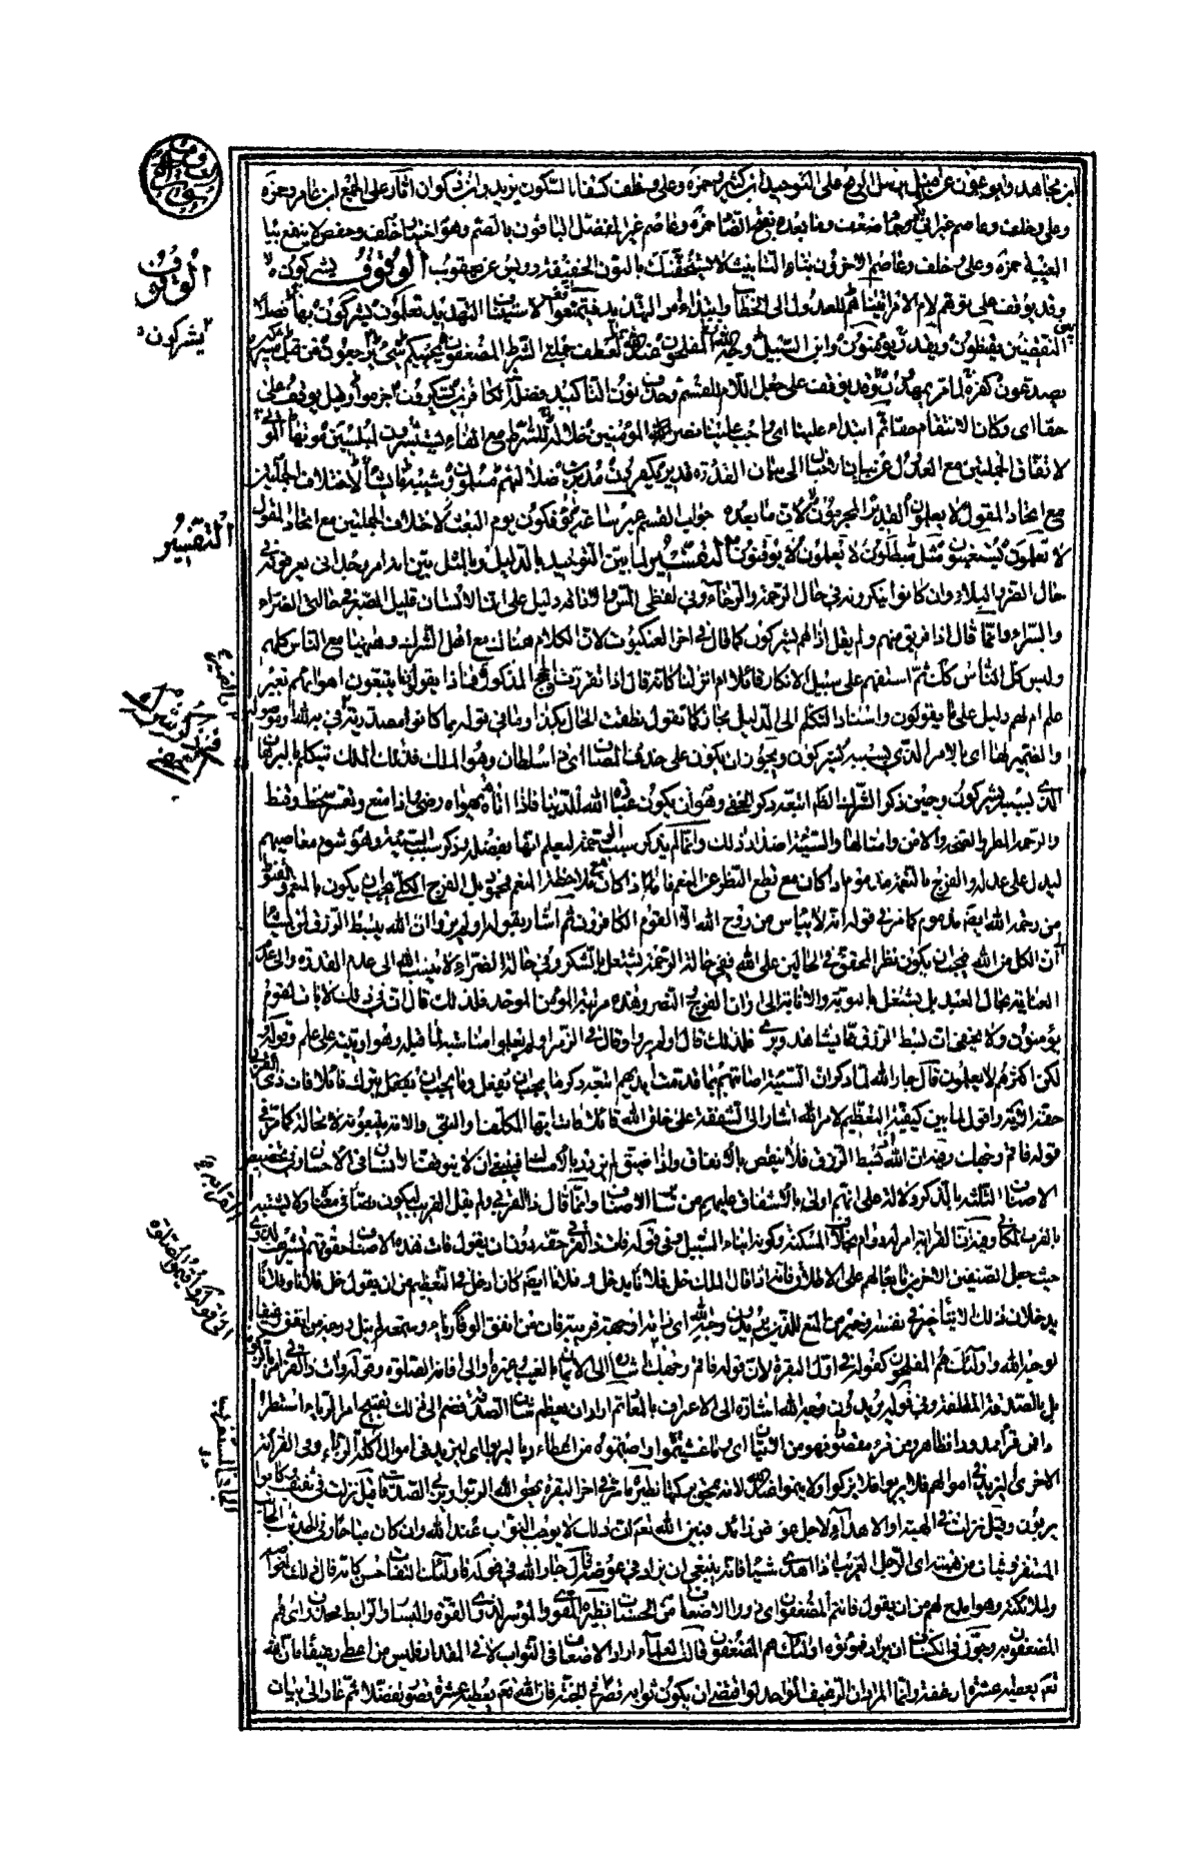 ابن مجاهد وابو عون عن قنبل على التوحيد ابن كثير وحمزة وعلى وخلف كسفا بالسكون يزيد وابن ذكوان آثار على الجمع ابن عامر وحمزة
وعلى وخلف وعاصم غير ضعف وما بعده بفتح الضاد حمزة وعاصم غير المفضل الباقون بالضم وهو اختيار خلف وحفص لا ينفع بياء
الغيبة حمزة وعلى وخلف وعاصم الآخرون بتاء التأنيث لا يستخفنك بالنون الخفيفة رويس عن يعقوب الوقوف يشركون
وقد يوقف على توهم لام الامر للعدول الى الخطاب وابتداء امر التهديد فتمتعوا لاستيناف التهديد تعلمون يشركون بها فصلا
النقيضين يقنطون ويقدر يؤمنون وابن السبيل وجه الله المفلحون عند الله لعطف جملتي الشرط المضعفون يحييكم شيء يرجعون من قبل مشركين
يصدعون كفره يمهدون وقد يوقف على جعل اللام للقسم وحذف نون التاكيد فضله الكافرين تشكرون اجرموا وقيل يوقف على
حقا اى وكان الانتقام حقا ثم ابتداء علينا اى واجب علينا نصر المؤمنين خلاله للشرط مع الفاء يستبشرون لمبلسين موتها الموتى
لاتفاق الجملتين مع العدول عن بيان الى بيان القدرة قدير يكفرون مدبرين ضلالتهم مسلمون وشيبة ما يشاء لاختلاف الجملتين
مع اتحاد المقول لا يعلمون القدير المجرمون لان ما بعده جواب القسم غير ساعة يؤفكون يوم البعث لاختلاف الجملتين مع اتحاد المقول
لا تعلمون يستعتبون مثل مبطلون لا يعلمون لا يوقنون التفسير لما بين التوحيد بالدليل وبالمثل بين انه امر وجدانى يعرفونه في
حال الضر والبلاء وان كانوا ينكرونه في حال الرحمة والرخاء وفي لفظي المس والاذاقة دليل على ان الانسان قليل الصبر في حالتي الضراء
والسراء وانما قال اذا فريق منهم ولم يقل اذا هم يشركون كما قال في آخر العنكبوت لان الكلام هناك مع اهل الشرك وههنا مع الناس كلهم
وليس كل الناس كذلك ثم استفهم على سبيل الانكار قائلا ام انزلنا كانه قال اذا تقررت الحجج المذكورة فماذا يقولون يتبعون اهواءهم بغير
علم ام لهم دليل على ما يقولون واسناد التكلم الى الدليل مجاز كما تقول نطقت الحال بكذا وما في قوله بما كانوا مصدرية اى بشركهم بالله او موصولة
والضمير لها اى بالامر الذي بسببه يشركون ويجوز ان يكون على حذف المضاف اى ذا سلطان وهو الملك فذلك الملك يتكلم بالبرهان
الذي بسببه يشركون وحين ذكر الشرك الظاهر اتبعه ذكر الخفي وهو ان يكون عبادة الله للدنيا فاذا اتاه بهواه رضى واذا منع وتعسر سخط وقنط
والرحمة المطر والصحة والامن وامثالها والسيئة اضداد ذلك وانما لم يذكر سبب الرحمة ليعلم انها بفضله وذكر سبب السيئة وهو شوم معاصيهم
ليدل على عدله والفرح بالنعمة مذموم اذا كان مع قطع النظر عن المنعم فاما اذا كان مع ملاحظة المنعم فمحمود بل الفرح الكلى يجب ان يكون بالمنعم والقنوط
من رحمة الله ايضا مذموم كما مر في قوله انه لا ييأس من روح الله الا القوم الكافرون ثم اشار بقوله اولم يروا ان الله يبسط الرزق لمن يشاء
ان الكل من الله فيجب ان يكون نظر المحقق في الحالين على الله ففي حالة الرحمة يشتغل بالشكر وفي حالة الضراء لا ينسب الله الى عدم القدرة والى عدم
العناية بحال العبد بل يشتغل بالتوبة والانابة الى اوان الفرج والنصر وهذه مرتبة المؤمن الموحد فلذلك قال ان في ذلك لآيات لقوم
يؤمنون ولا يخفى ان بسط الرزق مما يشاهد ويرى فلذلك قال اولم يروا وقال في الزمر اولم يعلموا مناسبة لما قبله وهو اوتيته على علم وقوله
لكن اكثرهم لا يعلمون قال جار الله لما ذكر ان السيئة اصابتهم بما قدمت ايديهم اتبعه ذكر ما يجب ان يفعل وما يجب ان يترك قائلا فات ذا القربى
حقه الآية واقول لما بين كيفية التعظيم لامر الله اشار الى الشفقة على خلق الله قائلا فات ايها المكلف او النبي والامة يتبعونه لا محالة كما مر في
قوله فاقم وجهك وفيه ان الله اذا بسط الرزق فلا ينقص بالانفاق واذا ضيق لم يزدد بالامساك فينبغي ان لا يتوقف الانسان في الاحسان وفي تخصيص
الاصناف الثلثة بالذكر دلالة على انهم اولى بالاشفاق عليهم من سائر الاصناف وانما قال ذا القربى ولم يقل القريب ليكون نصا في معناه ولا يشتبه
بالقرب المكانى وفيه ان القرابة امر له دوام بخلاف المسكنة وكونه ابناء السبيل وفي قوله فات ذا القربى حقه دون ان يقول فات هذه الاصناف حقوقهم تشريف لذوى
حيث جعل الصنفين الآخرين تابعا لهم على الاطلاق فانه اذا قال الملك خل فلانا يدخل وفلانا ايضا كان ادخل في التعظيم من ان يقول خل فلانا وفلانا
يدخلان ذلك الايتاء خير في نفسه وخير من المنع للذين يريدون وجه الله اى ذاته او جهة قربته فان من انفق الوفا رياء وسمعة لم ينل درجة من انفق رغيفا
لوجه الله واولئك هم المفلحون كقوله في اول البقرة لان قوله فاقم وجهك اشارة الى الايمان بالغيب وغيره والى اقامة الصلوة وقوله وات ذا القربى امر بالزكوة
بل بالصدقة المطلقة وفي قوله يريدون وجه الله اشارة الى الاعتراف بالمعاد ثم اراد ان يعظم شان الصدقة فضم الى ذلك تقبيح امر الرباء استطرادا
فمن قرأ ممدودا فظاهر ومن قرأ مقصورا فهو من الاتيان اى وما غشيتموه او اصبتموه من اعطاء ربا ليربوا اى ليزيد في اموال اكلة الربا وفي القراءة
الاخرى ليزيد في اموالهم فلا يربوا فلا يزكوا ولا ينموا عند الله لانه يمحق بركتها نظيره ما مر في آخر البقرة يمحق الله الربوا ويربى الصدقات قيل نزلت في ثقيف كانوا
يربون وقيل نزلت في الهبة او الاهداء لاجل عوض زائد فبين الله تعالى ان ذلك لا يوجب الثواب عند الله وان كان مباحا وفي الحديث الجانب
المستغزر يثاب من هبته اى الرجل الغريب اذا اهدى شيئا فانه ينبغي ان يزاد في عوضه قال جار الله في قوله فاولئك التفات حسن كانه قال ذلك لخواصه
ولملائكته وهو امدح لهم من ان يقول فانتم المضعفون اى ذوو الاضعاف من الحسنات نظيره المقوى والموسر لذي القوة واليسار والرابط محذوف اى هم
المضعفون به وجوز في الكشاف ان يراد فمؤتوه اولئك هم المضعفون قالت العلماء اراد الاضعاف في الثواب لا في المقدار فليس من اعطى رغيفا فان الله
تعالى يعطيه عشرة ارغفة وانما المراد ان الرغيف الواحد لو اقتضى ان يكون ثوابه قصرا في الجنة فان الله تعالى يعطيه عشرة قصور تفضلا ثم عاد الى بيان
الوقوف
يشركون
التفسير
القراءة
الى قوله اقيموا الصلوة
الجانب المستغزر